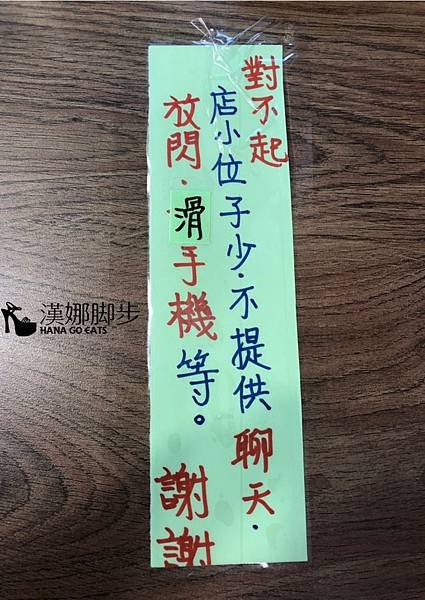 對不起
店小位子少·不提供聊天·
放閃·滑手機等。
謝謝
漢娜脚步
HANA GO EATS